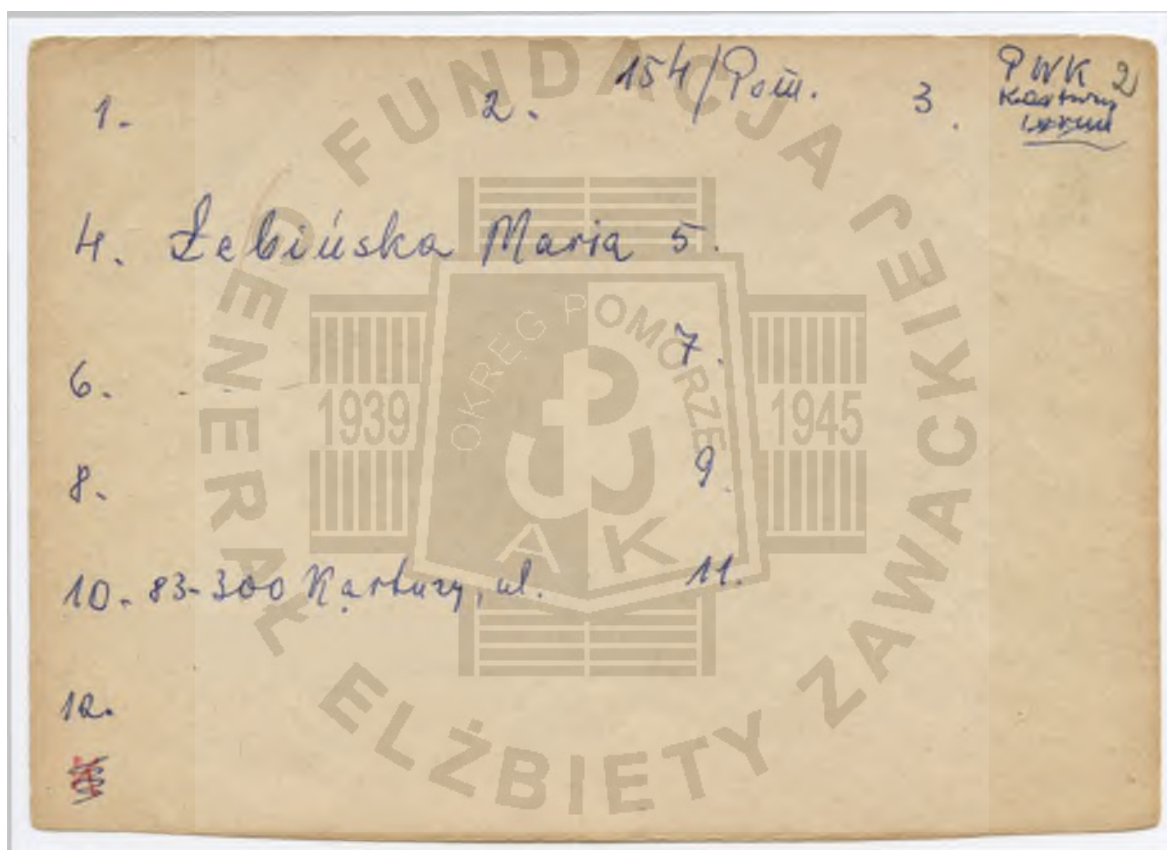 1. 2. 154/Pom. 3. PWK 2
Kartuzy
4. Żebińska Maria 5.
6. 7.
8. 9.
10. 83-300 Kartuzy, ul. 11.
12.
FUNDACJA GENERAŁ ELŻBIETY ZAWACKIEJ
OKRĘG POMORZE
1939 1945
AK